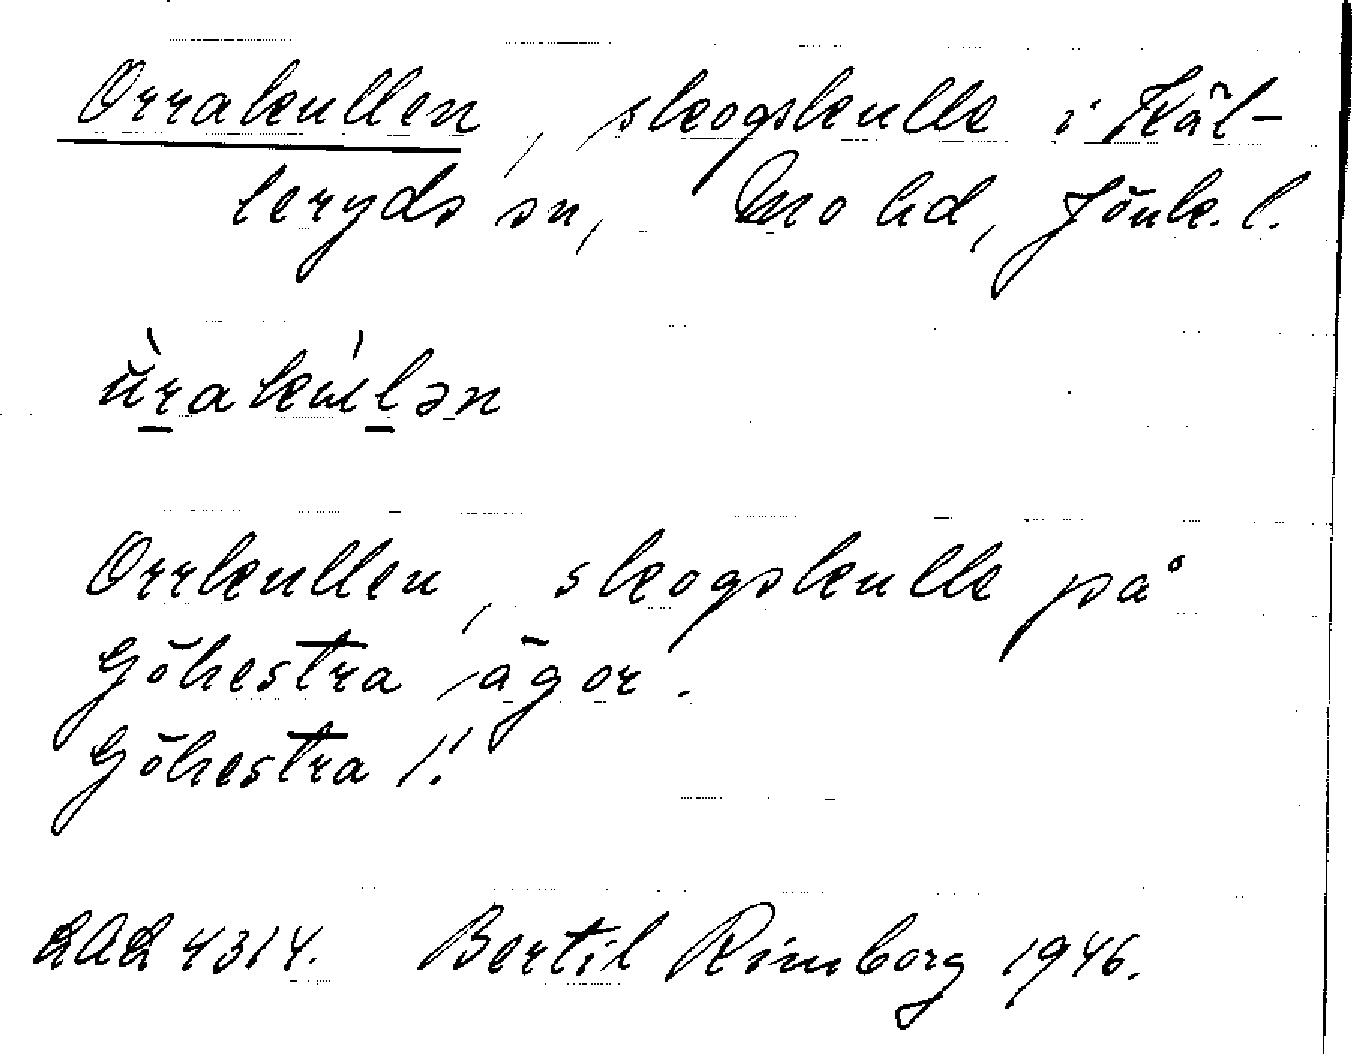 Orrakullen, skogskulle i Käl-
leryds sn, Mo hd, Jönk. l.
ùrakúlən
Orrkullen, skogskulle på
Göhestra ägor.
Göhestra 1:1
4314. Bertil Rimborg 1946.